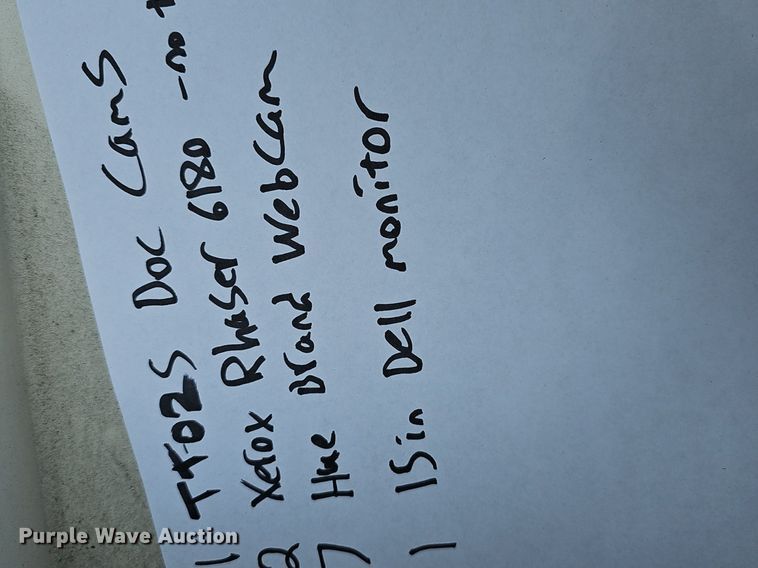 1 TT02S Doc Cams
2 Xerox Phaser 6180 -no t
7 Hue Brand WebCam
1 15in Dell monitor
Purple Wave Auction